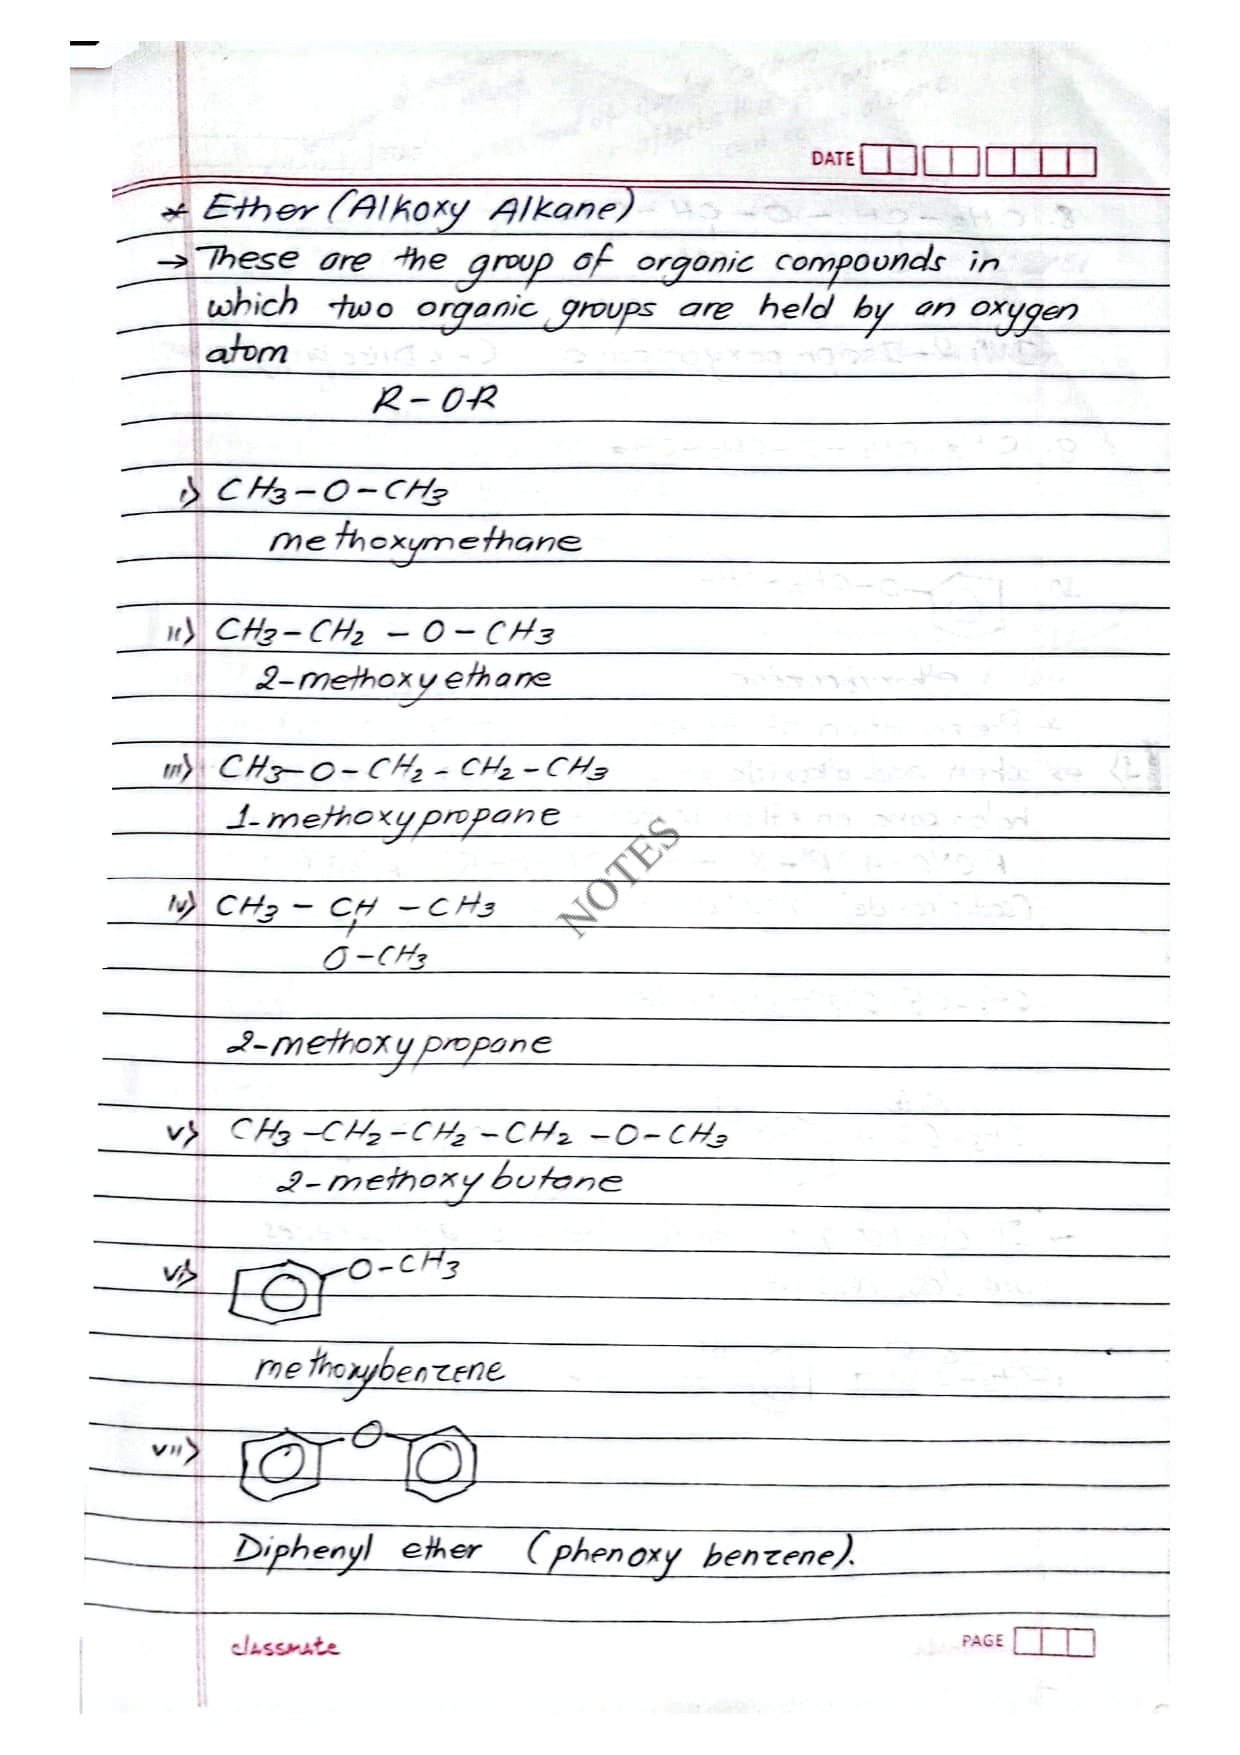 DATE
* Ether (Alkoxy Alkane)
→ These are the group of organic compounds in
which two organic groups are held by an oxygen
atom
R-OR
i) CH3-O-CH3
methoxymethane
ii) CH3-CH2-O-CH3
2-methoxyethane
iii) CH3-O-CH2-CH2-CH3
1-methoxypropane
NOTES
iv) CH3-CH-CH3
O-CH3
2-methoxypropane
v) CH3-CH2-CH2-CH2-O-CH3
2-methoxybutane
vi) O-CH3
methoxybenzene
vii) O
Diphenyl ether (phenoxy benzene).
classmate
PAGE